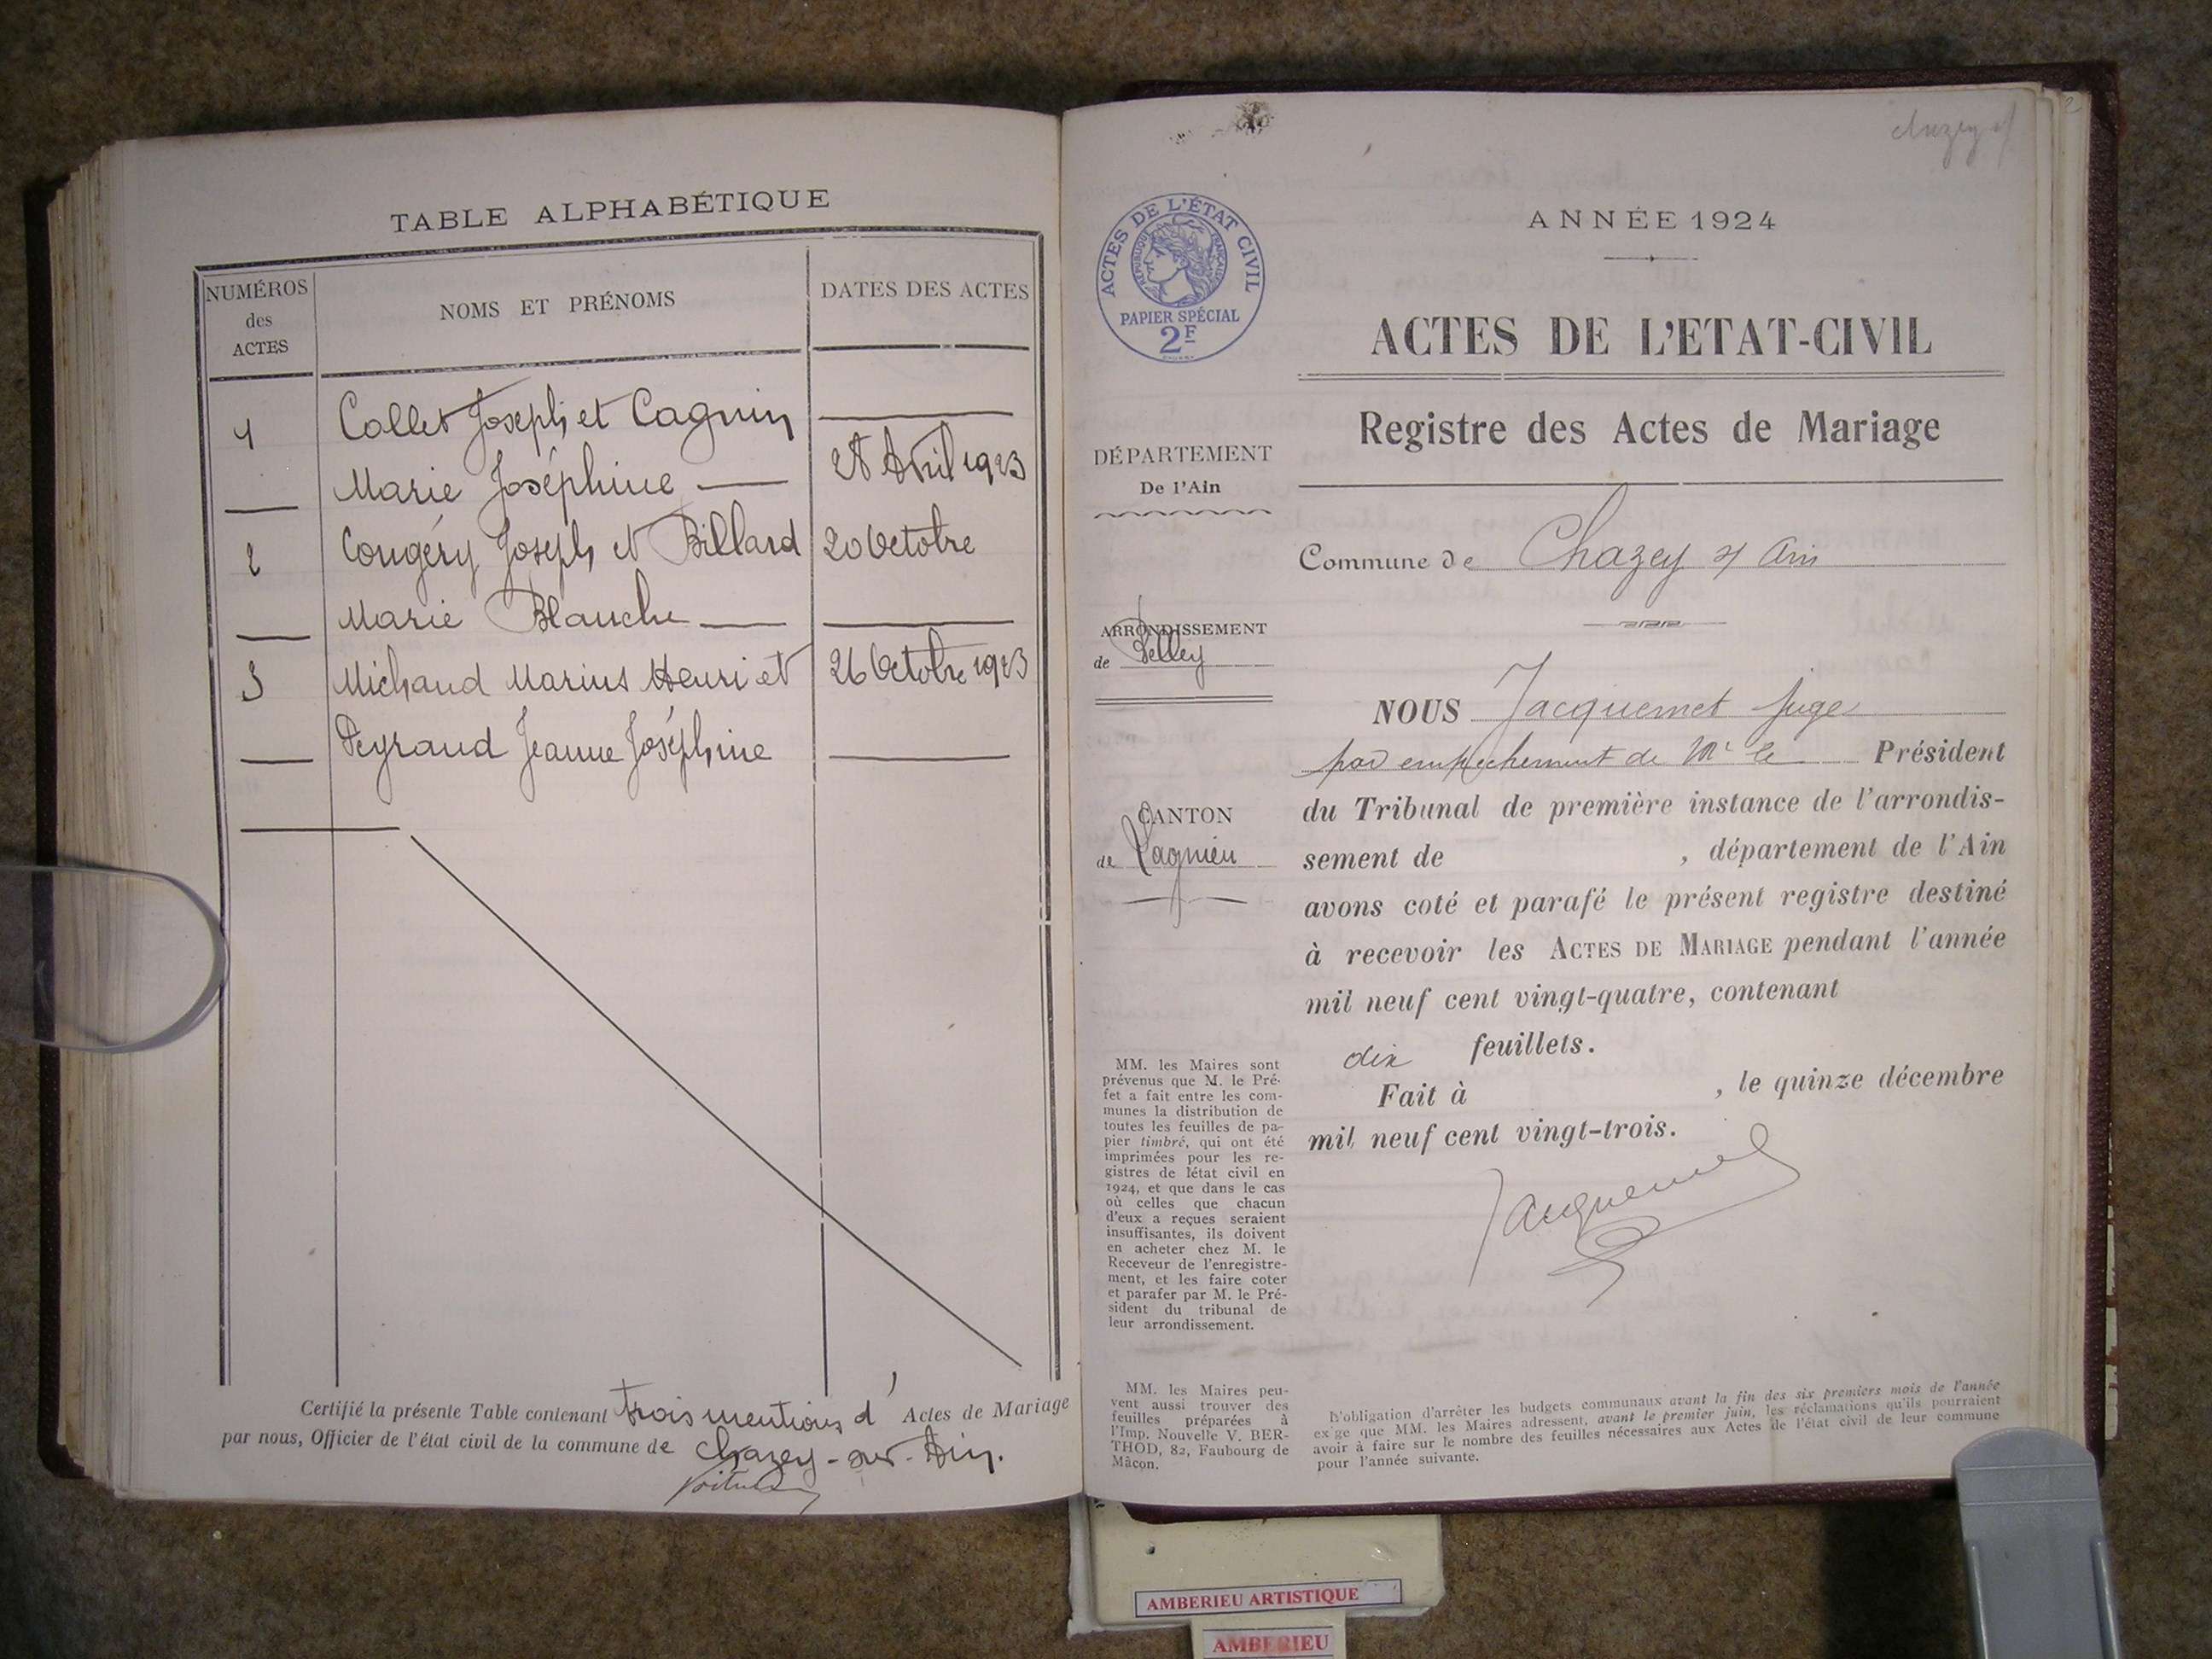 TABLE ALPHABÉTIQUE
NUMÉROS
des
ACTES
NOMS ET PRÉNOMS
DATES DES ACTES
1 Collet Joseph et Cagnin
Marie Joséphine — Avril 1923
2 Cougéry Joseph et Billard 20 Octobre
Marie Blanche
3 Michaud Marius Henri et 26 Octobre 1923
Peyraud Jeanne Joséphine
Certifié la présente Table contenant trois mentions d' Actes de Mariage
par nous, Officier de l'état civil de la commune de Chazey-sur-Ain.
Chazey s/
ACTES DE L'ÉTAT CIVIL
RÉPUBLIQUE FRANÇAISE
PAPIER SPÉCIAL
2F
ANNÉE 1924
ACTES DE L'ETAT-CIVIL
Registre des Actes de Mariage
DÉPARTEMENT
De l'Ain
Commune de Chazey s/ Ain
ARRONDISSEMENT
de Belley
CANTON
de Lagnieu
NOUS Jacquemet juge
par empêchement de Mr le Président
du Tribunal de première instance de l'arrondis-
sement de , département de l'Ain
avons coté et parafé le présent registre destiné
à recevoir les ACTES DE MARIAGE pendant l'année
mil neuf cent vingt-quatre, contenant
dix feuillets.
Fait à , le quinze décembre
mil neuf cent vingt-trois.
Jacquemet
MM. les Maires sont
prévenus que M. le Pré-
fet a fait entre les com-
munes la distribution de
toutes les feuilles de pa-
pier timbré, qui ont été
imprimées pour les re-
gistres de létat civil en
1924, et que dans le cas
où celles que chacun
d'eux a reçues seraient
insuffisantes, ils doivent
en acheter chez M. le
Receveur de l'enregistre-
ment, et les faire coter
et parafer par M. le Pré-
sident du tribunal de
leur arrondissement.
MM. les Maires peu-
vent aussi trouver des
feuilles préparées à
l'Imp. Nouvelle V. BER-
THOD, 82, Faubourg de
Mâcon.
L'obligation d'arrêter les budgets communaux avant la fin des six premiers mois de l'année
ex ge que MM. les Maires adressent, avant le premier juin, les réclamations qu'ils pourraient
avoir à faire sur le nombre des feuilles nécessaires aux Actes de l'état civil de leur commune
pour l'année suivante.
AMBERIEU ARTISTIQUE
AMBERIEU